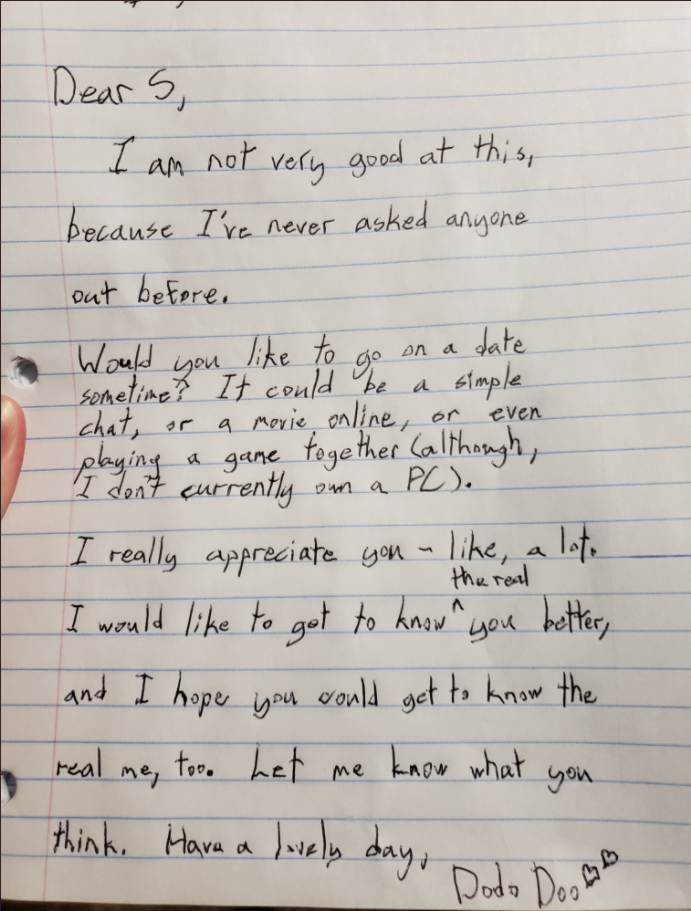 Dear S,
I am not very good at this,
because I've never asked anyone
out before.
Would you like to go on a date
sometime? It could be a simple
chat, or a movie online, or even
playing a game together (although,
I don't currently own a PC).
I really appreciate you - like, a lot.
the real
I would like to get to know ^ you better,
and I hope you could get to know the
real me, too. Let me know what you
think. Have a lovely day,
Dodo Doo